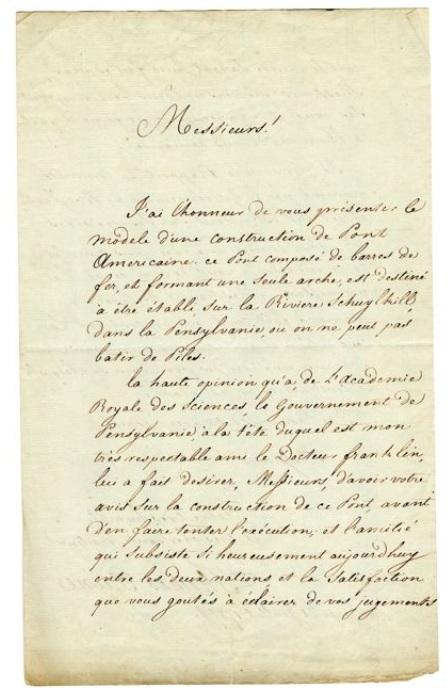 Messieurs!
J'ai l'honneur de vous présenter le
modele d'une construction de Pont
Americaine. ce Pont composé de barres de
fer, et formant une seule arche, est destiné
a être établi, sur la Riviére Schuylkill,
dans la Pensylvanie, ou on ne peut pas
batir de Piles.
la haute opinion qu'a, de L'academie
Royale des Sciences, le Gouvernement de
Pensylvanie, à la tête duquel est mon
trés respectable ami le Docteur franklin,
lui a fait desirer, Messieurs, d'avoir votre
avis sur la construction de ce Pont, avant
d'en faire tenter l'exécution; et l'amitié
qui Subsiste Si heureusement aujourdhuy
entre les deux nations et la Satisfaction
que vous goutés à éclairer de vos jugements